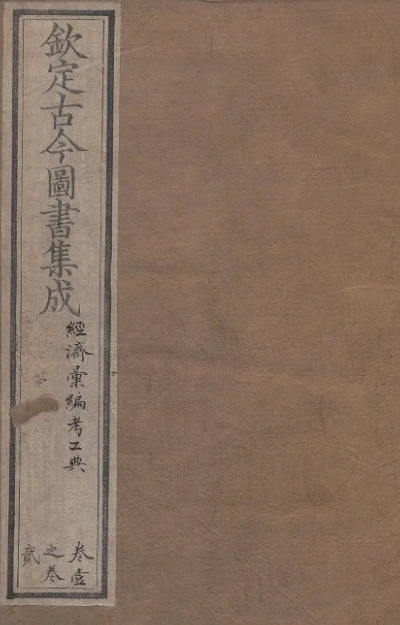 欽定古今圖書集成
經濟彙編考工典
卷壹
之卷
貳